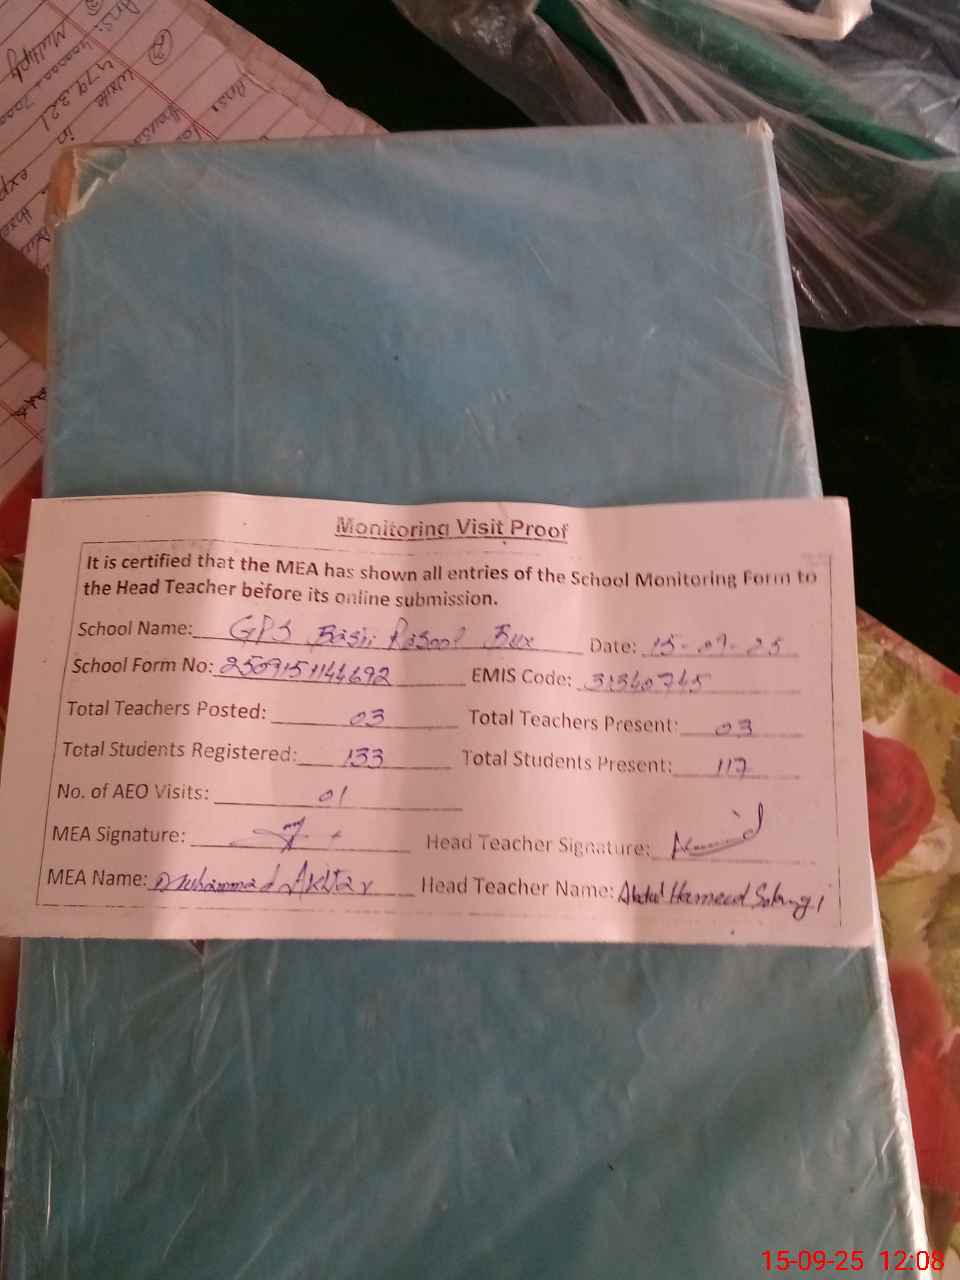 Monitoring Visit Proof
It is certified that the MEA has shown all entries of the School Monitoring Form to
the Head Teacher before its online submission.
School Name: GPS Basti Rasool Bux Date: 15-09-25
School Form No: 2509151144692 EMIS Code: 31340745
Total Teachers Posted: 03 Total Teachers Present: 03
Total Students Registered: 133 Total Students Present: 117
No. of AEO Visits: 01
MEA Signature: Head Teacher Signature:
MEA Name: Muhammad Akhtar Head Teacher Name: Abdul Hameed
Multiply
Write
in
15-09-25 12:08